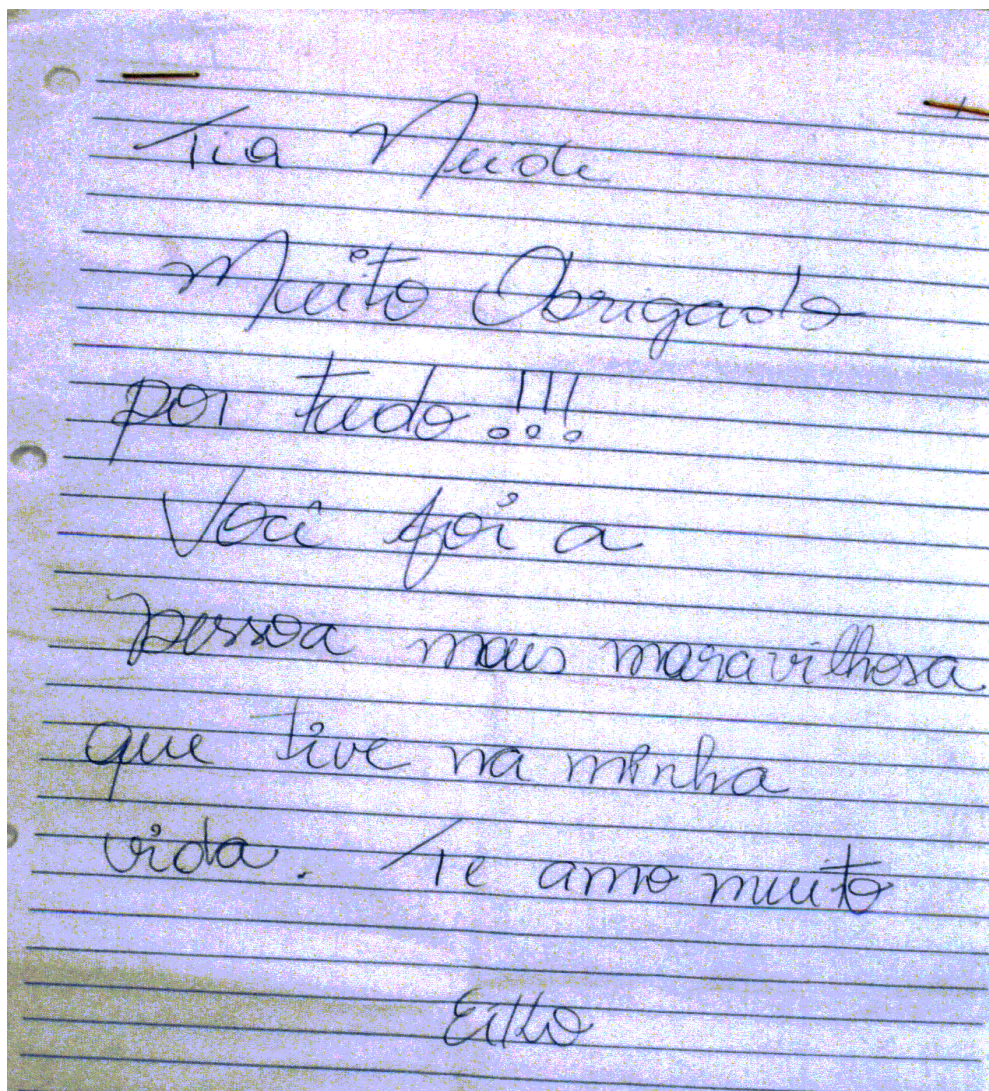 Tia Neide
Muito Obrigado
por tudo!!!
Você foi a
pessoa mais maravilhosa
que tive na minha
vida. Te amo muito